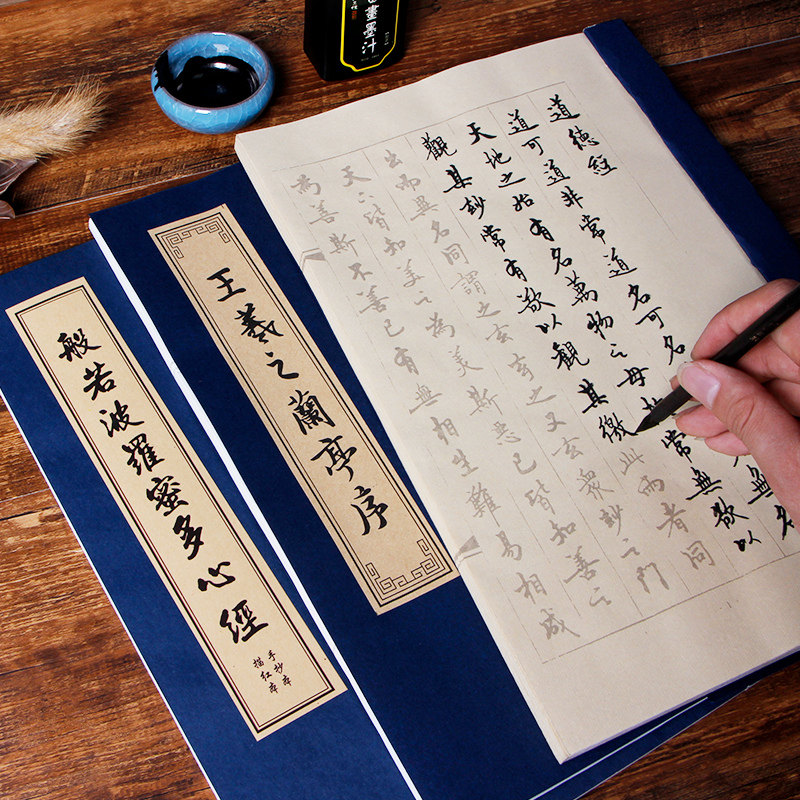 畫墨汁
道德經
道可道非常道名可名
無名
天地之始有名萬物之母故常無欲以
觀其妙常有欲以觀其徼此兩者同
出而異名同謂之玄玄之又玄眾妙之門
天下皆知美之為美斯惡已皆知善之
為善斯不善已有無相生難易相成
王羲之蘭亭序
般若波羅蜜多心經
手抄本
描红本